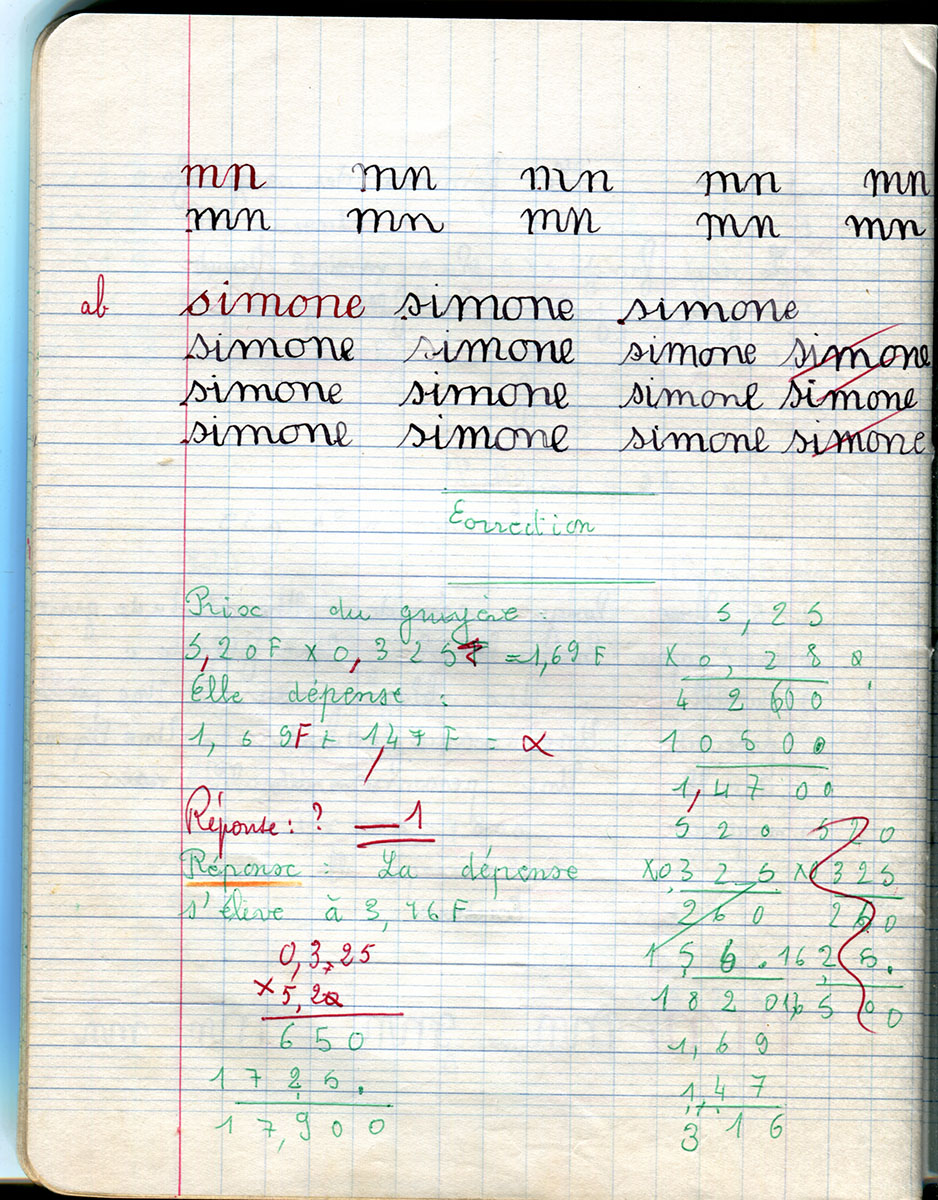 mn mn mn mn mn
mn mn mn mn mn
ab simone simone simone
simone simone simone simone
simone simone simone simone
simone simone simone simone
Correction
Prix du gruyère :
5,20F x 0,325 = 1,69 F
Elle dépense :
1,69F + 1,47 F = α
Réponse : ? — 1
Réponse : La dépense
s'élève à 3,16F
0,325
x 5,20
650
1725.
17,900
5,25
x 0,280
4200
10500
1,4700
520 520
x0,325 x 325
260 260
156. 1625.
1820 16500
1,69
1,47
3 16